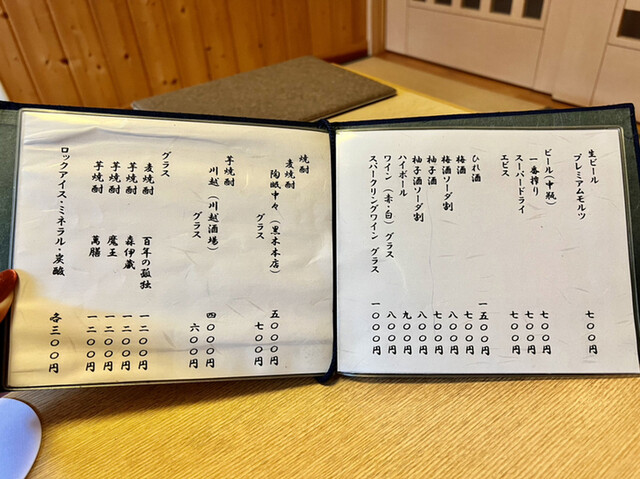 生ビール
プレミアムモルツ 七〇〇円
ビール(中瓶)
一番搾り 七〇〇円
スーパードライ 七〇〇円
エビス 七〇〇円
ひれ酒 一五〇〇円
梅酒 七〇〇円
梅酒ソーダ割 八〇〇円
柚子酒 七〇〇円
柚子酒ソーダ割 八〇〇円
ハイボール 九〇〇円
ワイン(赤・白)グラス 八〇〇円
スパークリングワイン グラス 一〇〇〇円
焼酎
麦焼酎
陶眠中々(黒木本店) 五〇〇〇円
グラス 七〇〇円
芋焼酎
川越(川越酒場) 四〇〇〇円
グラス 六〇〇円
グラス
麦焼酎 百年の孤独 一二〇〇円
芋焼酎 森伊蔵 一二〇〇円
芋焼酎 魔王 一二〇〇円
芋焼酎 萬膳 一二〇〇円
ロックアイス・ミネラル・炭酸 各三〇〇円